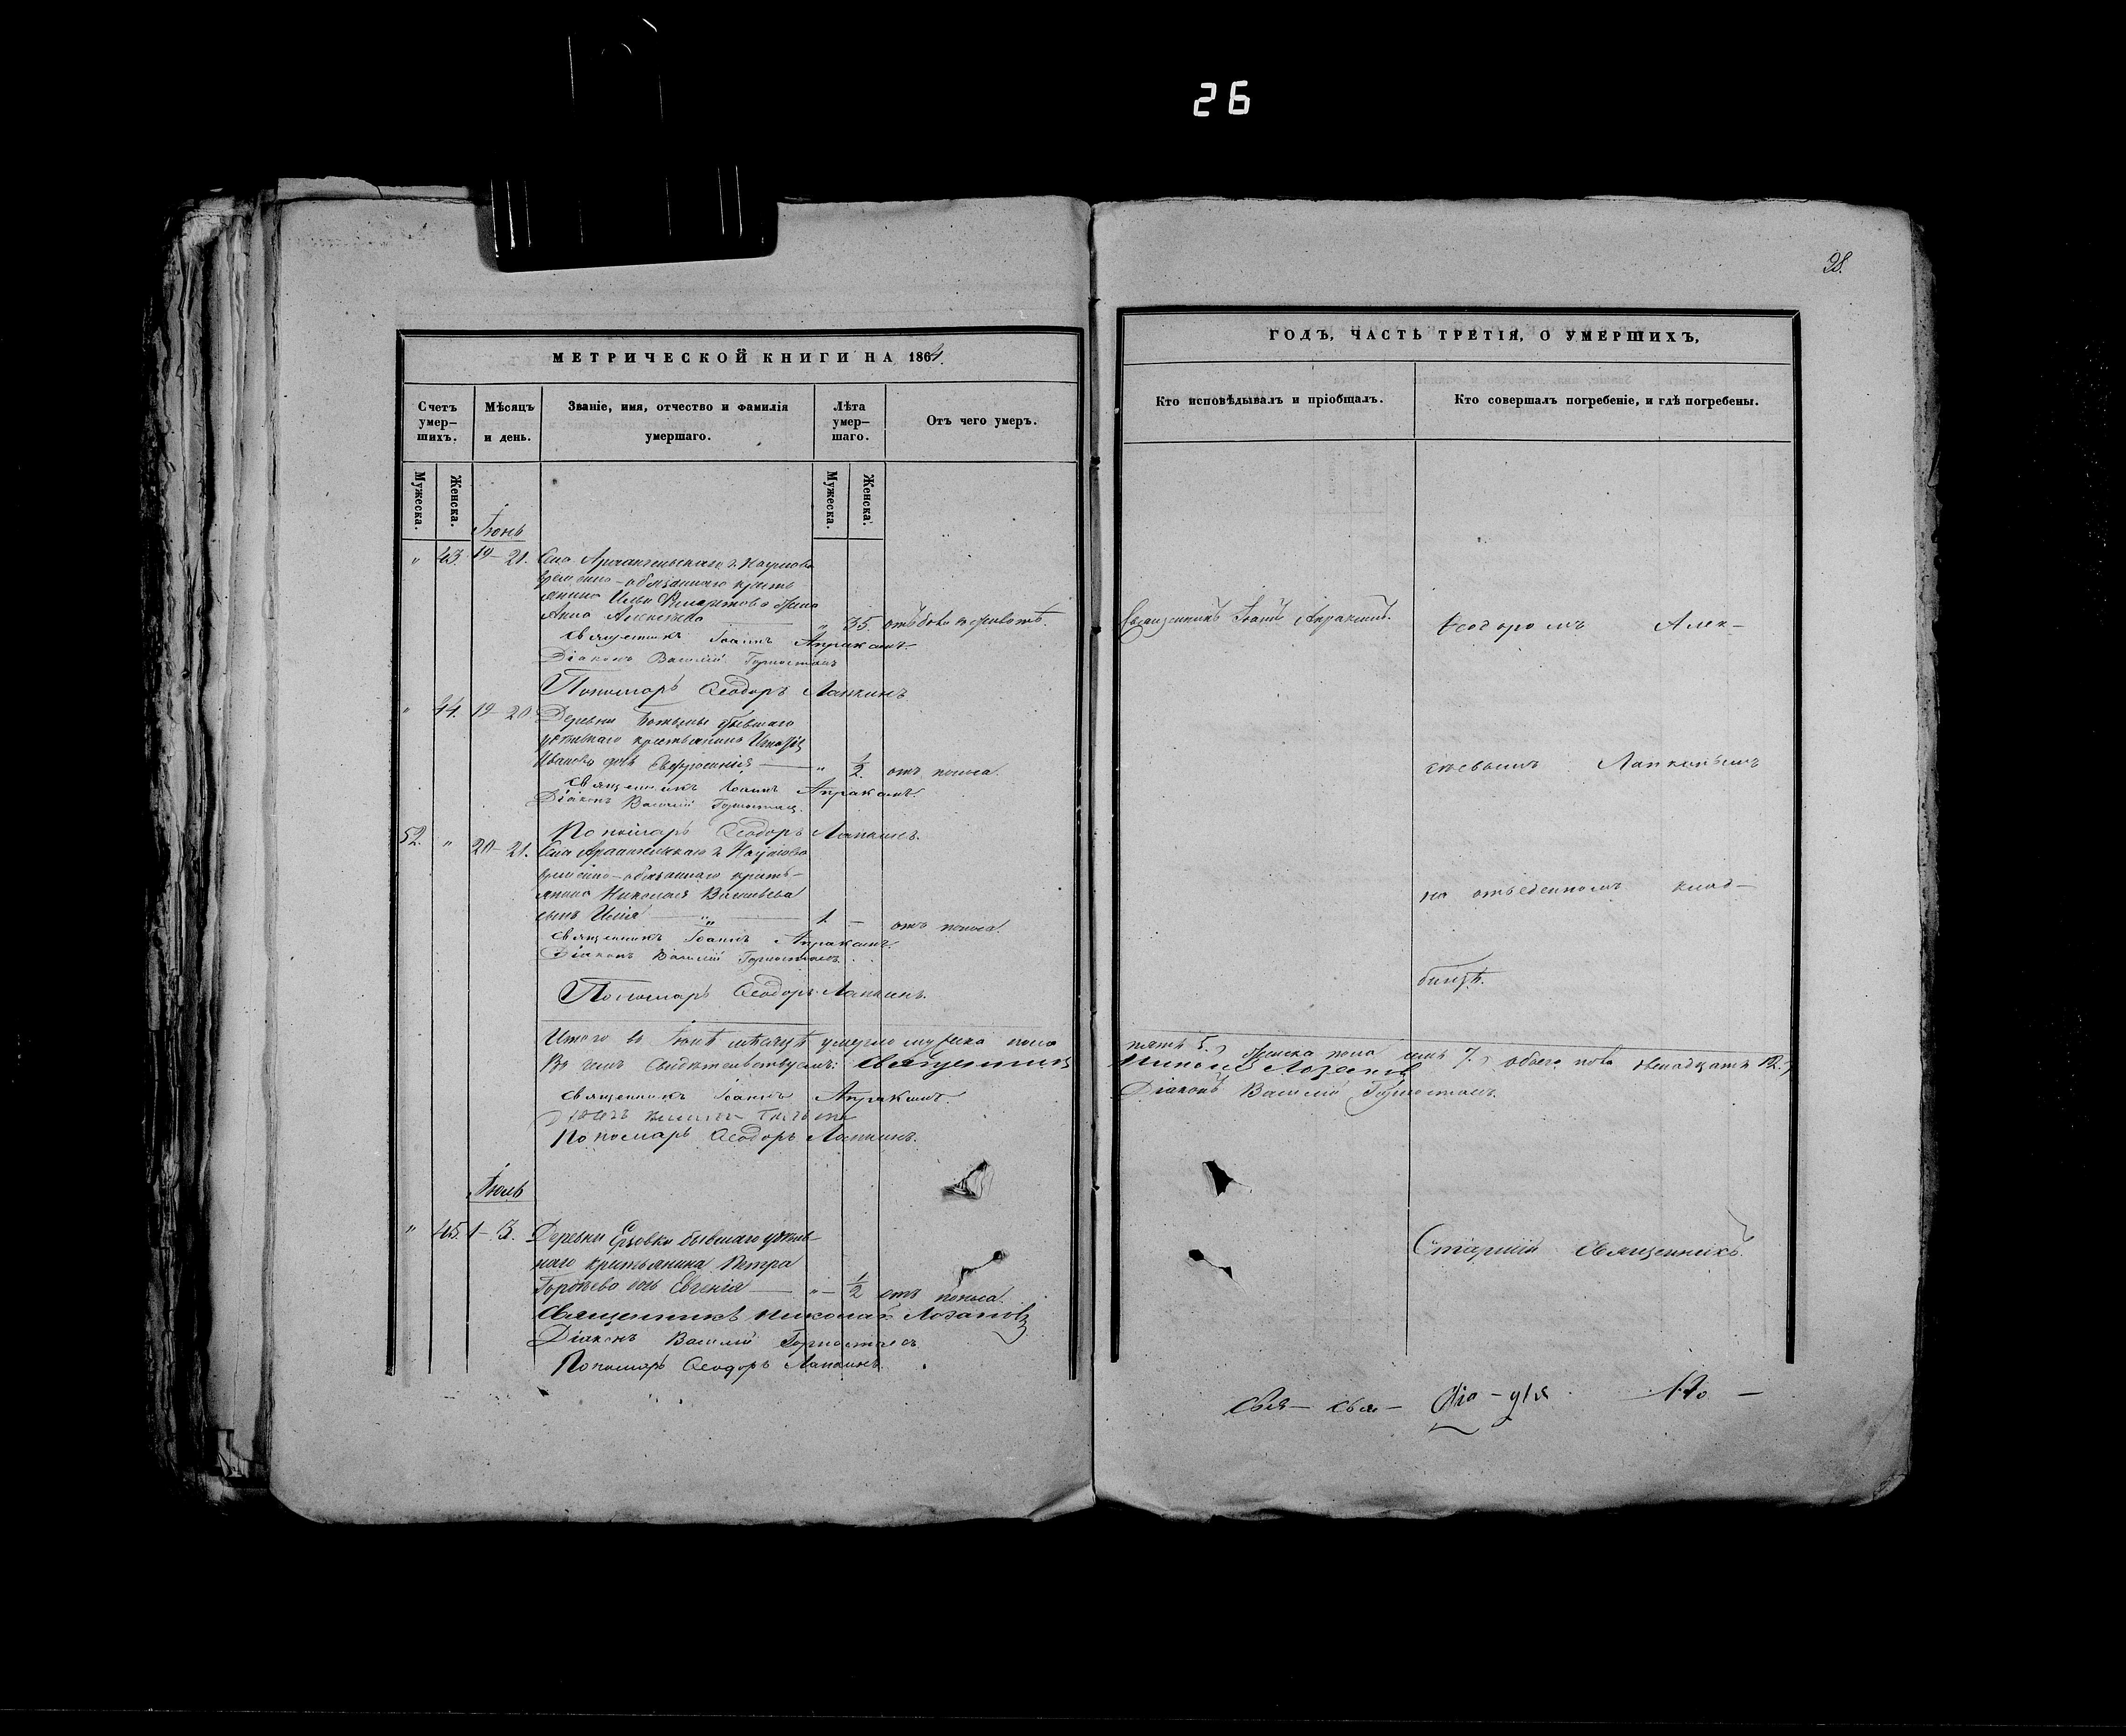 26
28.
МЕТРИЧЕСКОЙ КНИГИ НА 1864.
Счетъ умер–шихъ.
Мѣсяцъ и день.
Званіе, имя, отчество и фамилія умершаго.
Лѣта умер–шаго.
Отъ чего умеръ.
Мужеска.
Женска.
Мужеска.
Женска.
Іюнь
" 43. 19–21. Села Архангельскаго
временно-обязаннаго кресть
янина Ильи жена
Анна Алексѣева " 35. отъ боли въ животѣ.
Священникъ Іоаннъ Апраксинъ
Діаконъ Василій
Пономарь Ѳеодоръ Лапкинъ
" 44. 19–20 Деревни бывшаго
удѣльнаго крестьянина
Иванова дочь Евфросинія " 1/2. отъ поноса.
Священникъ Іоаннъ Апраксинъ.
Діаконъ Василій
Пономарь Ѳеодоръ Лапкинъ.
52. " 20–21. Села Архангельскаго
временно-обязаннаго кресть–
янина Николая Васильева
сынъ Илія " 1. – отъ поноса.
Священникъ Іоаннъ Апраксинъ.
Діаконъ Василій
Пономарь Ѳеодоръ Лапкинъ.
Итого въ Іюнѣ мѣсяцѣ умерло мужеска пола
Въ чемъ свидѣтельствуемъ: Священникъ
Священникъ Іоаннъ Апраксинъ.
Пономарь Ѳеодоръ Лапкинъ.
Іюль
" 45. 1–3. Деревни Ерзовки бывшаго удѣль
наго крестьянина Петра
дочь Евгенія " – 1/2 отъ поноса.
Священникъ Николай Лозановъ
Діаконъ Василій
Пономарь Ѳеодоръ Лапкинъ.
ГОДЪ, ЧАСТЬ ТРЕТІЯ, О УМЕРШИХЪ,
Кто исповѣдывалъ и пріобщалъ.
Кто совершалъ погребеніе, и гдѣ погребены.
Священникъ Іоаннъ Апраксинъ.
Ѳеодоромъ Алек–
сѣевымъ Лапкинымъ
на отведенномъ клад–
бищѣ.
пять 5., женска пола семь 7., обоего пола двенадцать 12.,
Николай Лозановъ
Діаконъ Василій
Старшій Священникъ
Свя– свя– По –